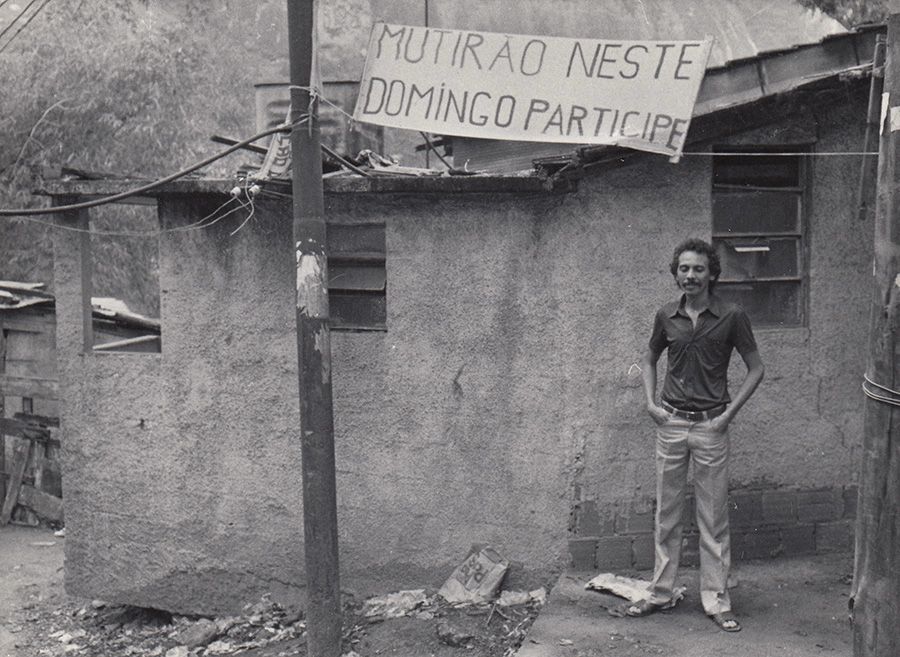 MUTIRÃO NESTE
DOMINGO PARTICIPE